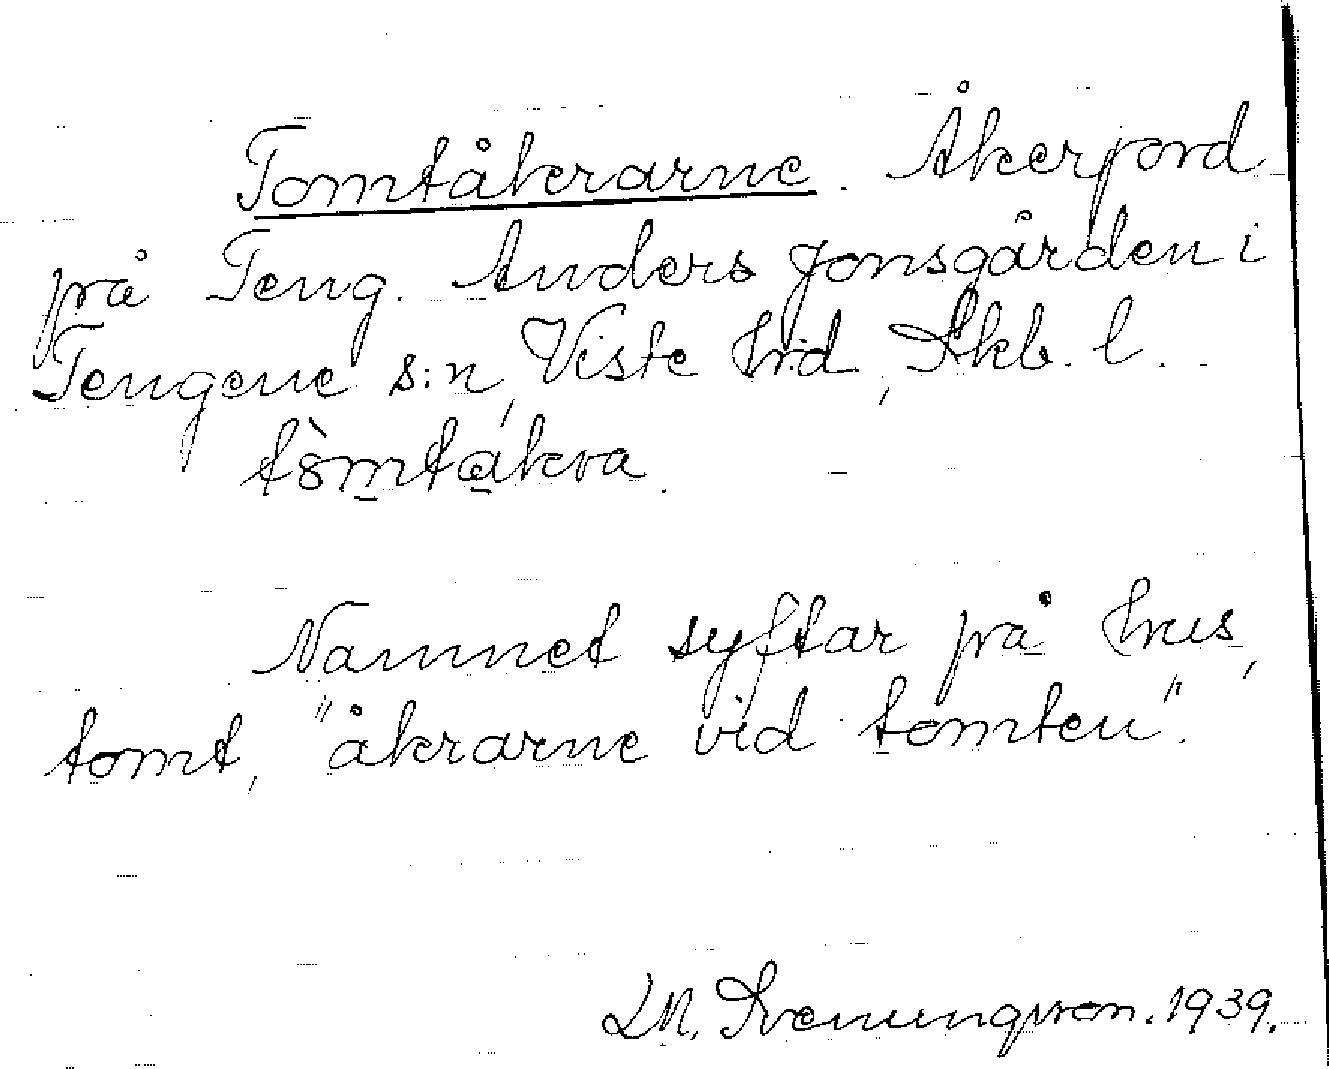 Tomtåkrarne. Åkerjord
på Teng. Anders Jonsgården i
Tengene s:n, Viste hrd, Skb. l.
tòmtåkra.
Namnet syftar på hus,
tomt, "åkrarne vid tomten".
1939.